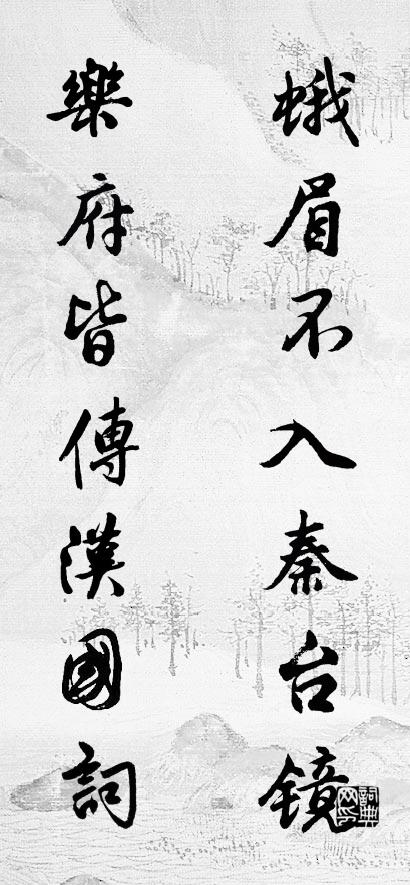 蛾眉不入秦台镜
樂府皆傳漢國詞
詞典网